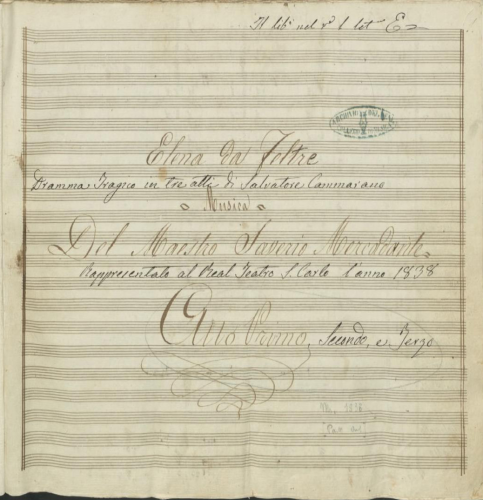 Il lib° nel
Elena da Feltre
Dramma Tragico in tre atti di Salvatore Cammarano
Musica
Del Maestro Saverio Mercadante
Rappresentata al Real Teatro S. Carlo l'anno 1838
Atto Primo, Secondo, e Terzo